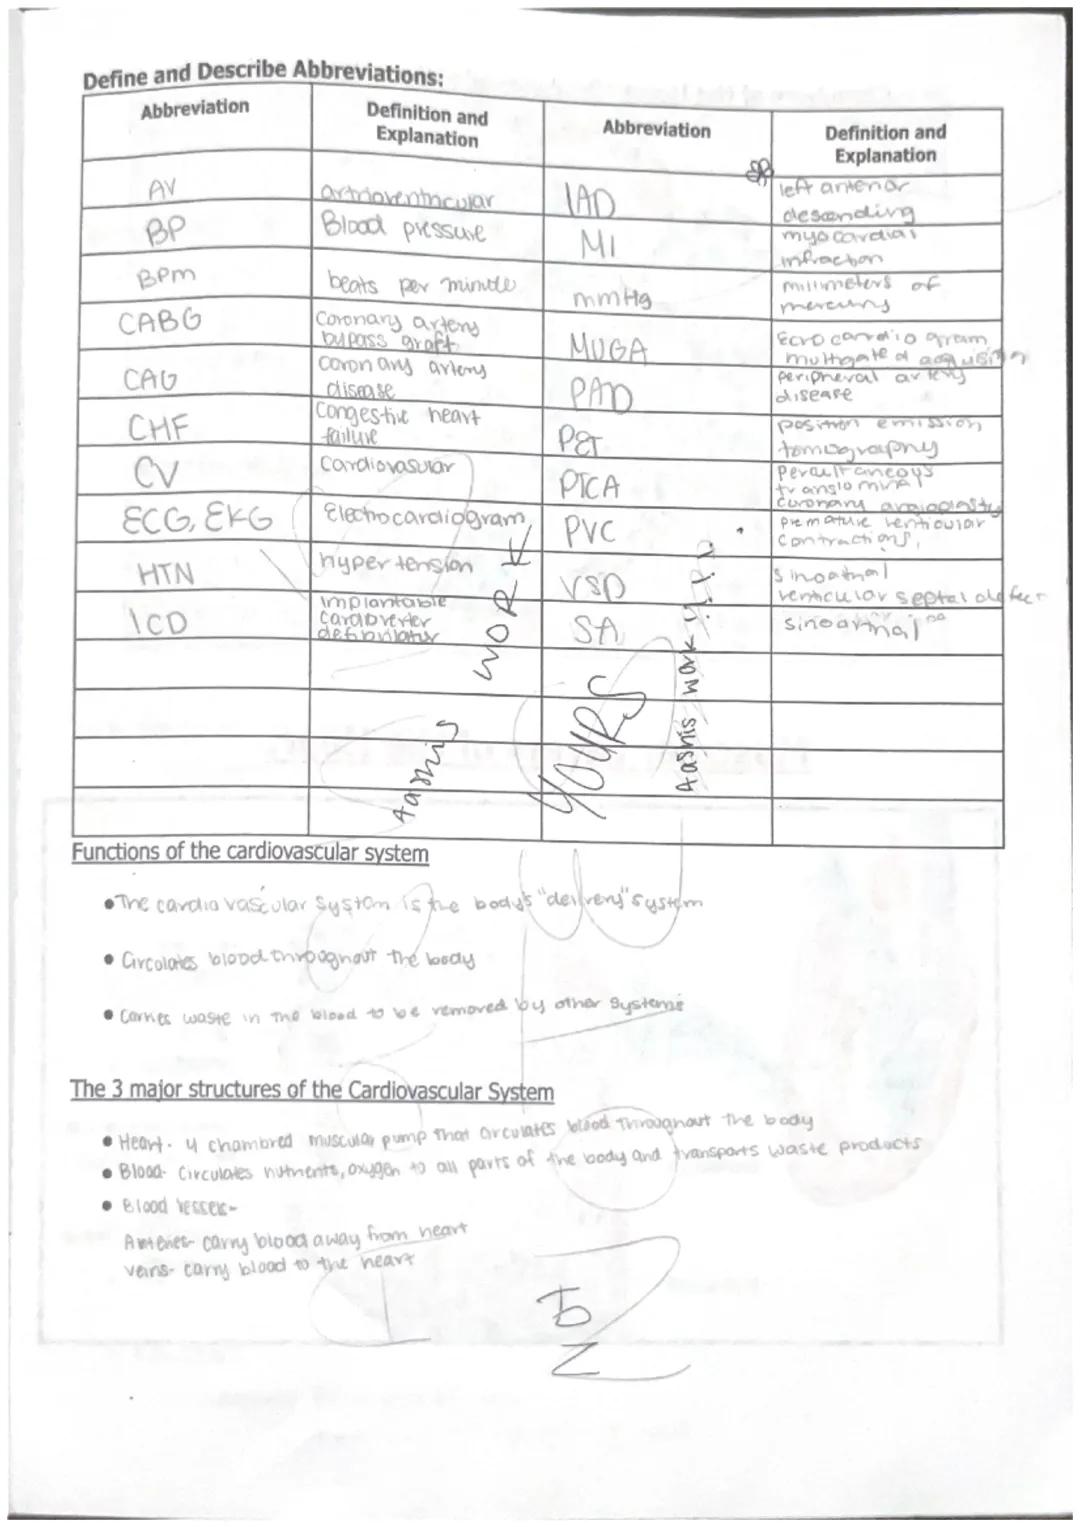 Define and Describe Abbreviations:
Abbreviation
Definition and
Explanation
Abbreviation
Definition and
Explanation
AV
artrioventricular
LAD
left anterior
descending
BP
Blood pressure
MI
myocardial
infraction
BPm
beats per minute
mmHg
millimeters of
mercury
CABG
Coronary artery
bypass graft
MUGA
multigated aqusition
CAG
coronary artery
disease
PAD
peripheral artery
disease
CHF
Congestive heart
failure
PET
position emission
tomography
CV
Cardiovasular
PTCA
translominal
coronary angioplasty
ECG, EKG
Electrocardiogram
PVC
premature venticular
contractions,
HTN
hypertension
VSD
Sinoatrial
venticular septal defect
ICD
Implantable
defibrilatur
SA
Aashis WORK
YOURS
Aashis work
Functions of the cardiovascular system
• The cardiovascular system is the body's "delivery" system
• Circolates blood throughout the body
• Carries waste in the blood to be removed by other systems
The 3 major structures of the Cardiovascular System
• Heart- 4 chambred muscular pump that circulates blood throughout the body
• Blood- Circulates nutrients, oxygen to all parts of the body and transports waste products
• Blood Vessels-
Arteries- carry blood away from heart
veins- carry blood to the heart